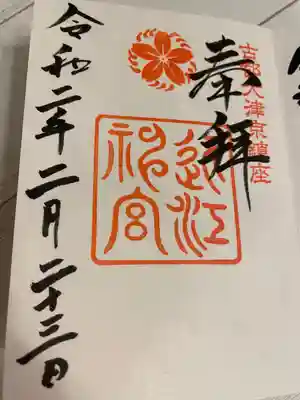 奉拝
古都大津京鎮座
近江
神宮
令和二年二月二十三日